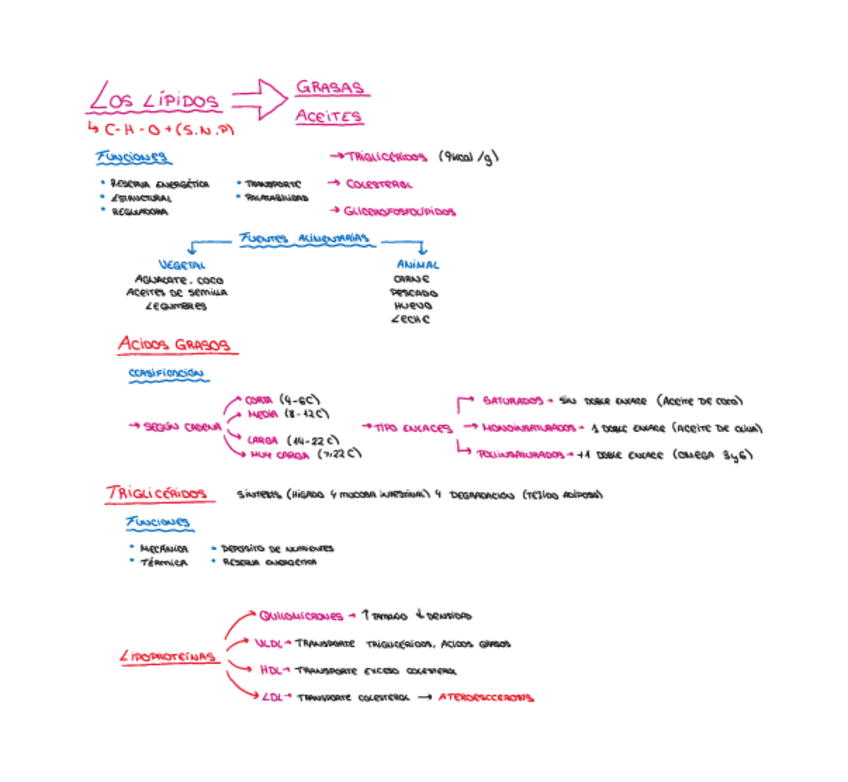 LOS LÍPIDOS ⇒ GRASAS
ACEITES
↳ C-H-O+(S.N.P)
FUNCIONES
→ TRIGLICÉRIDOS (9kcal/g)
• RESERVA ENERGÉTICA • TRANSPORTE → COLESTEROL
• ESTRUCTURAL • PALATABILIDAD
• REGULADORA → GLICEROFOSFOLÍPIDOS
FUENTES ALIMENTARIAS
VEGETAL ANIMAL
AGUACATE, COCO CARNE
ACEITES DE SEMILLA PESCADO
LEGUMBRES HUEVO
LECHE
ACIDOS GRASOS
CLASIFICACIÓN
→ SEGÚN CADENA
CORTA (4-6C)
MEDIA (8-12C)
LARGA (14-22C)
MUY LARGA (>22C)
→ TIPO ENLACES
SATURADOS → SIN DOBLE ENLACE (ACEITE DE COCO)
→ MONOINSATURADOS → 1 DOBLE ENLACE (ACEITE DE OLIVA)
POLIINSATURADOS → +1 DOBLE ENLACE (OMEGA 3y6)
TRIGLICÉRIDOS SÍNTESIS (HÍGADO Y MUCOSA INTESTINAL) Y DEGRADACIÓN (TEJIDO ADIPOSO)
FUNCIONES
• MECÁNICA • DEPÓSITO DE NUTRIENTES
• TÉRMICA • RESERVA ENERGÉTICA
LIPOPROTEÍNAS
QUILOMICRONES → ↑ TAMAÑO ↓ DENSIDAD
VLDL → TRANSPORTE TRIGLICÉRIDOS, ACIDOS GRASOS
HDL → TRANSPORTE EXCESO COLESTEROL
LDL → TRANSPORTE COLESTEROL → ATEROESCLEROSIS